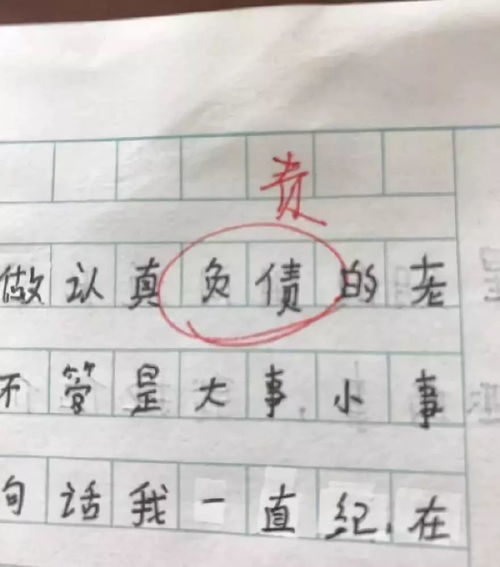 责
做认真负债的老
不管是大事,小事
句话我一直纪,在